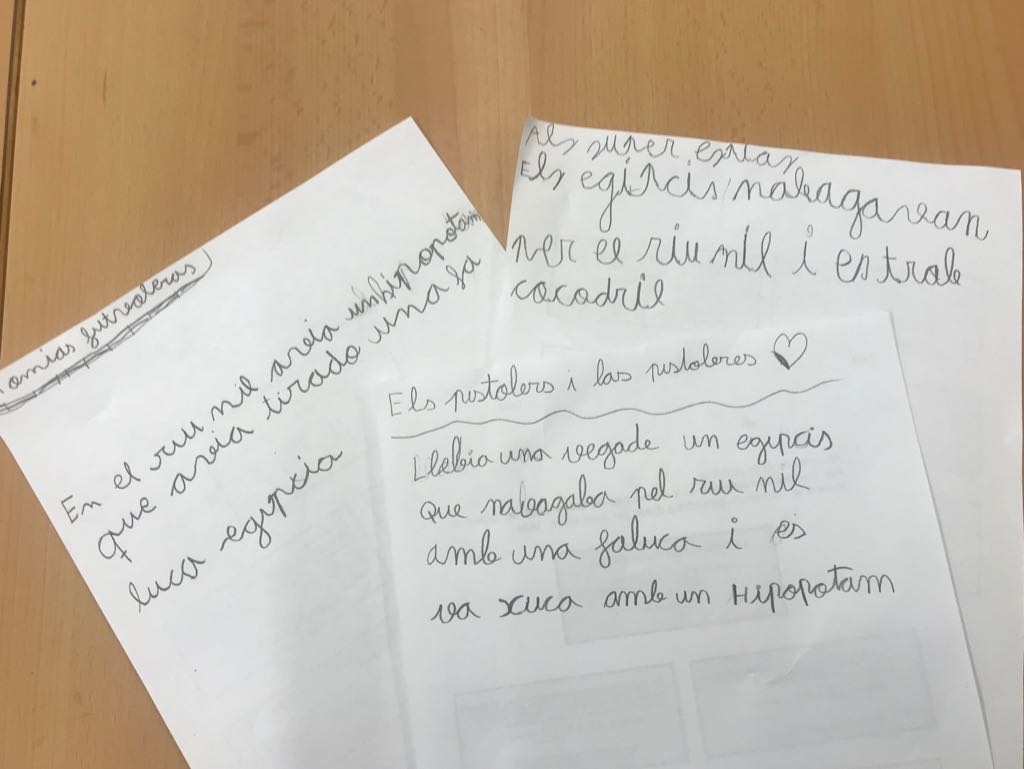 omias futroleras
En el riu nil avia un hipopotam
que avia tirado una fa
luca egipcia
Els super espias
Els egipcis nabagavan
per el riu nil i
cocodril
Els pistolers i las pistoleres
Llebia una vegade un egipcis
que nabagaba pel riu nil
amb una faluca i es
va xuca amb un Hipopotam